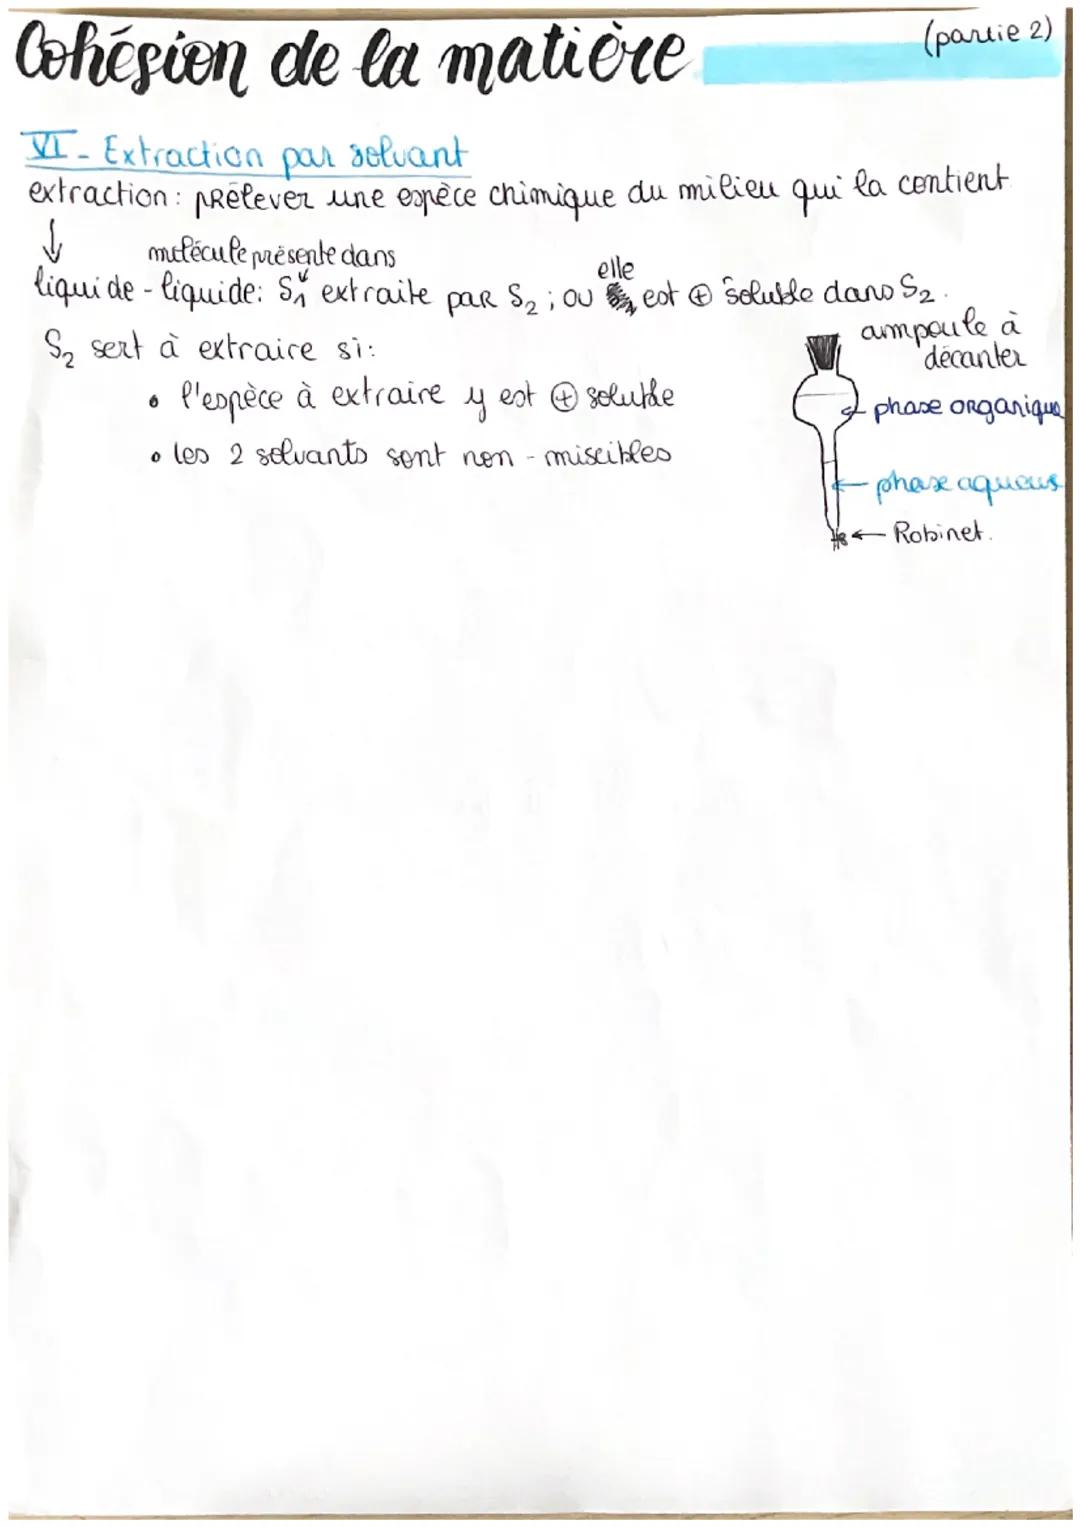 Cohésion de la matière
(partie 2)
VI - Extraction par solvant
extraction : prélever une espèce chimique du milieu qui la contient
↓ molécule présente dans
liquide - liquide: S₁ extraite par S₂ ; où elle est ⊕ soluble dans S₂.
S₂ sert à extraire si:
• l'espèce à extraire y est ⊕ soluble
• les 2 solvants sont non - miscibles
ampoule à
décanter
phase organique
phase aqueus
Robinet.